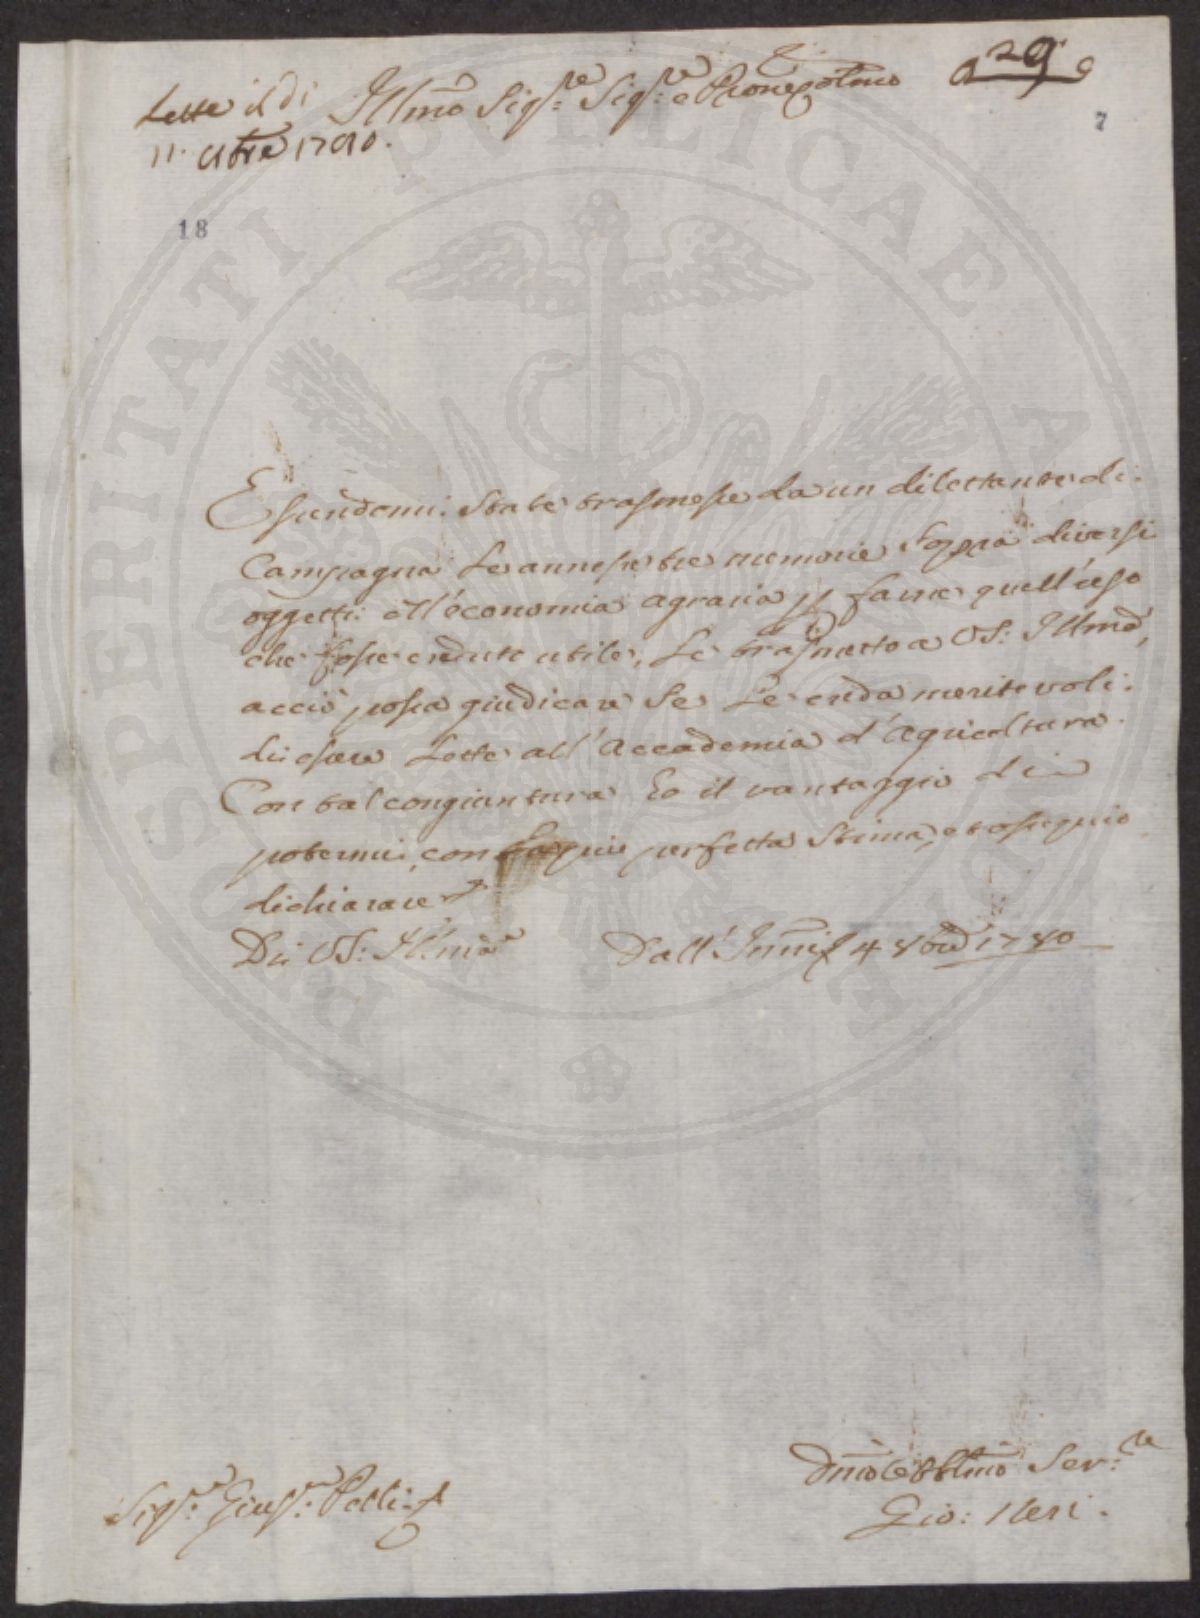 29
7
Illmo Sig:re Sig:re e Prone Colmo
Lette il dì
11. 8bre 1780.
18
Essendomi state trasmesse da un dilettante di
Campagna le annesse tre memorie sopra diversi
oggetti d'economia agraria p farne quell'uso
che fosse creduto utile, Le trasmetto a VS: Illma,
acciò possa giudicare se Le creda meritevoli
di essere Lette all'Accademia d'Agricoltura.
Con tal congiuntura ho il vantaggio di
potermi con perfetta stima, et ossequio
dichiarare
Di VS: Illma
Dall' 4 8bre 1780
Dmo Obblmo Ser:re
Gio: Neri.
Sig:r Giusp: Pelli